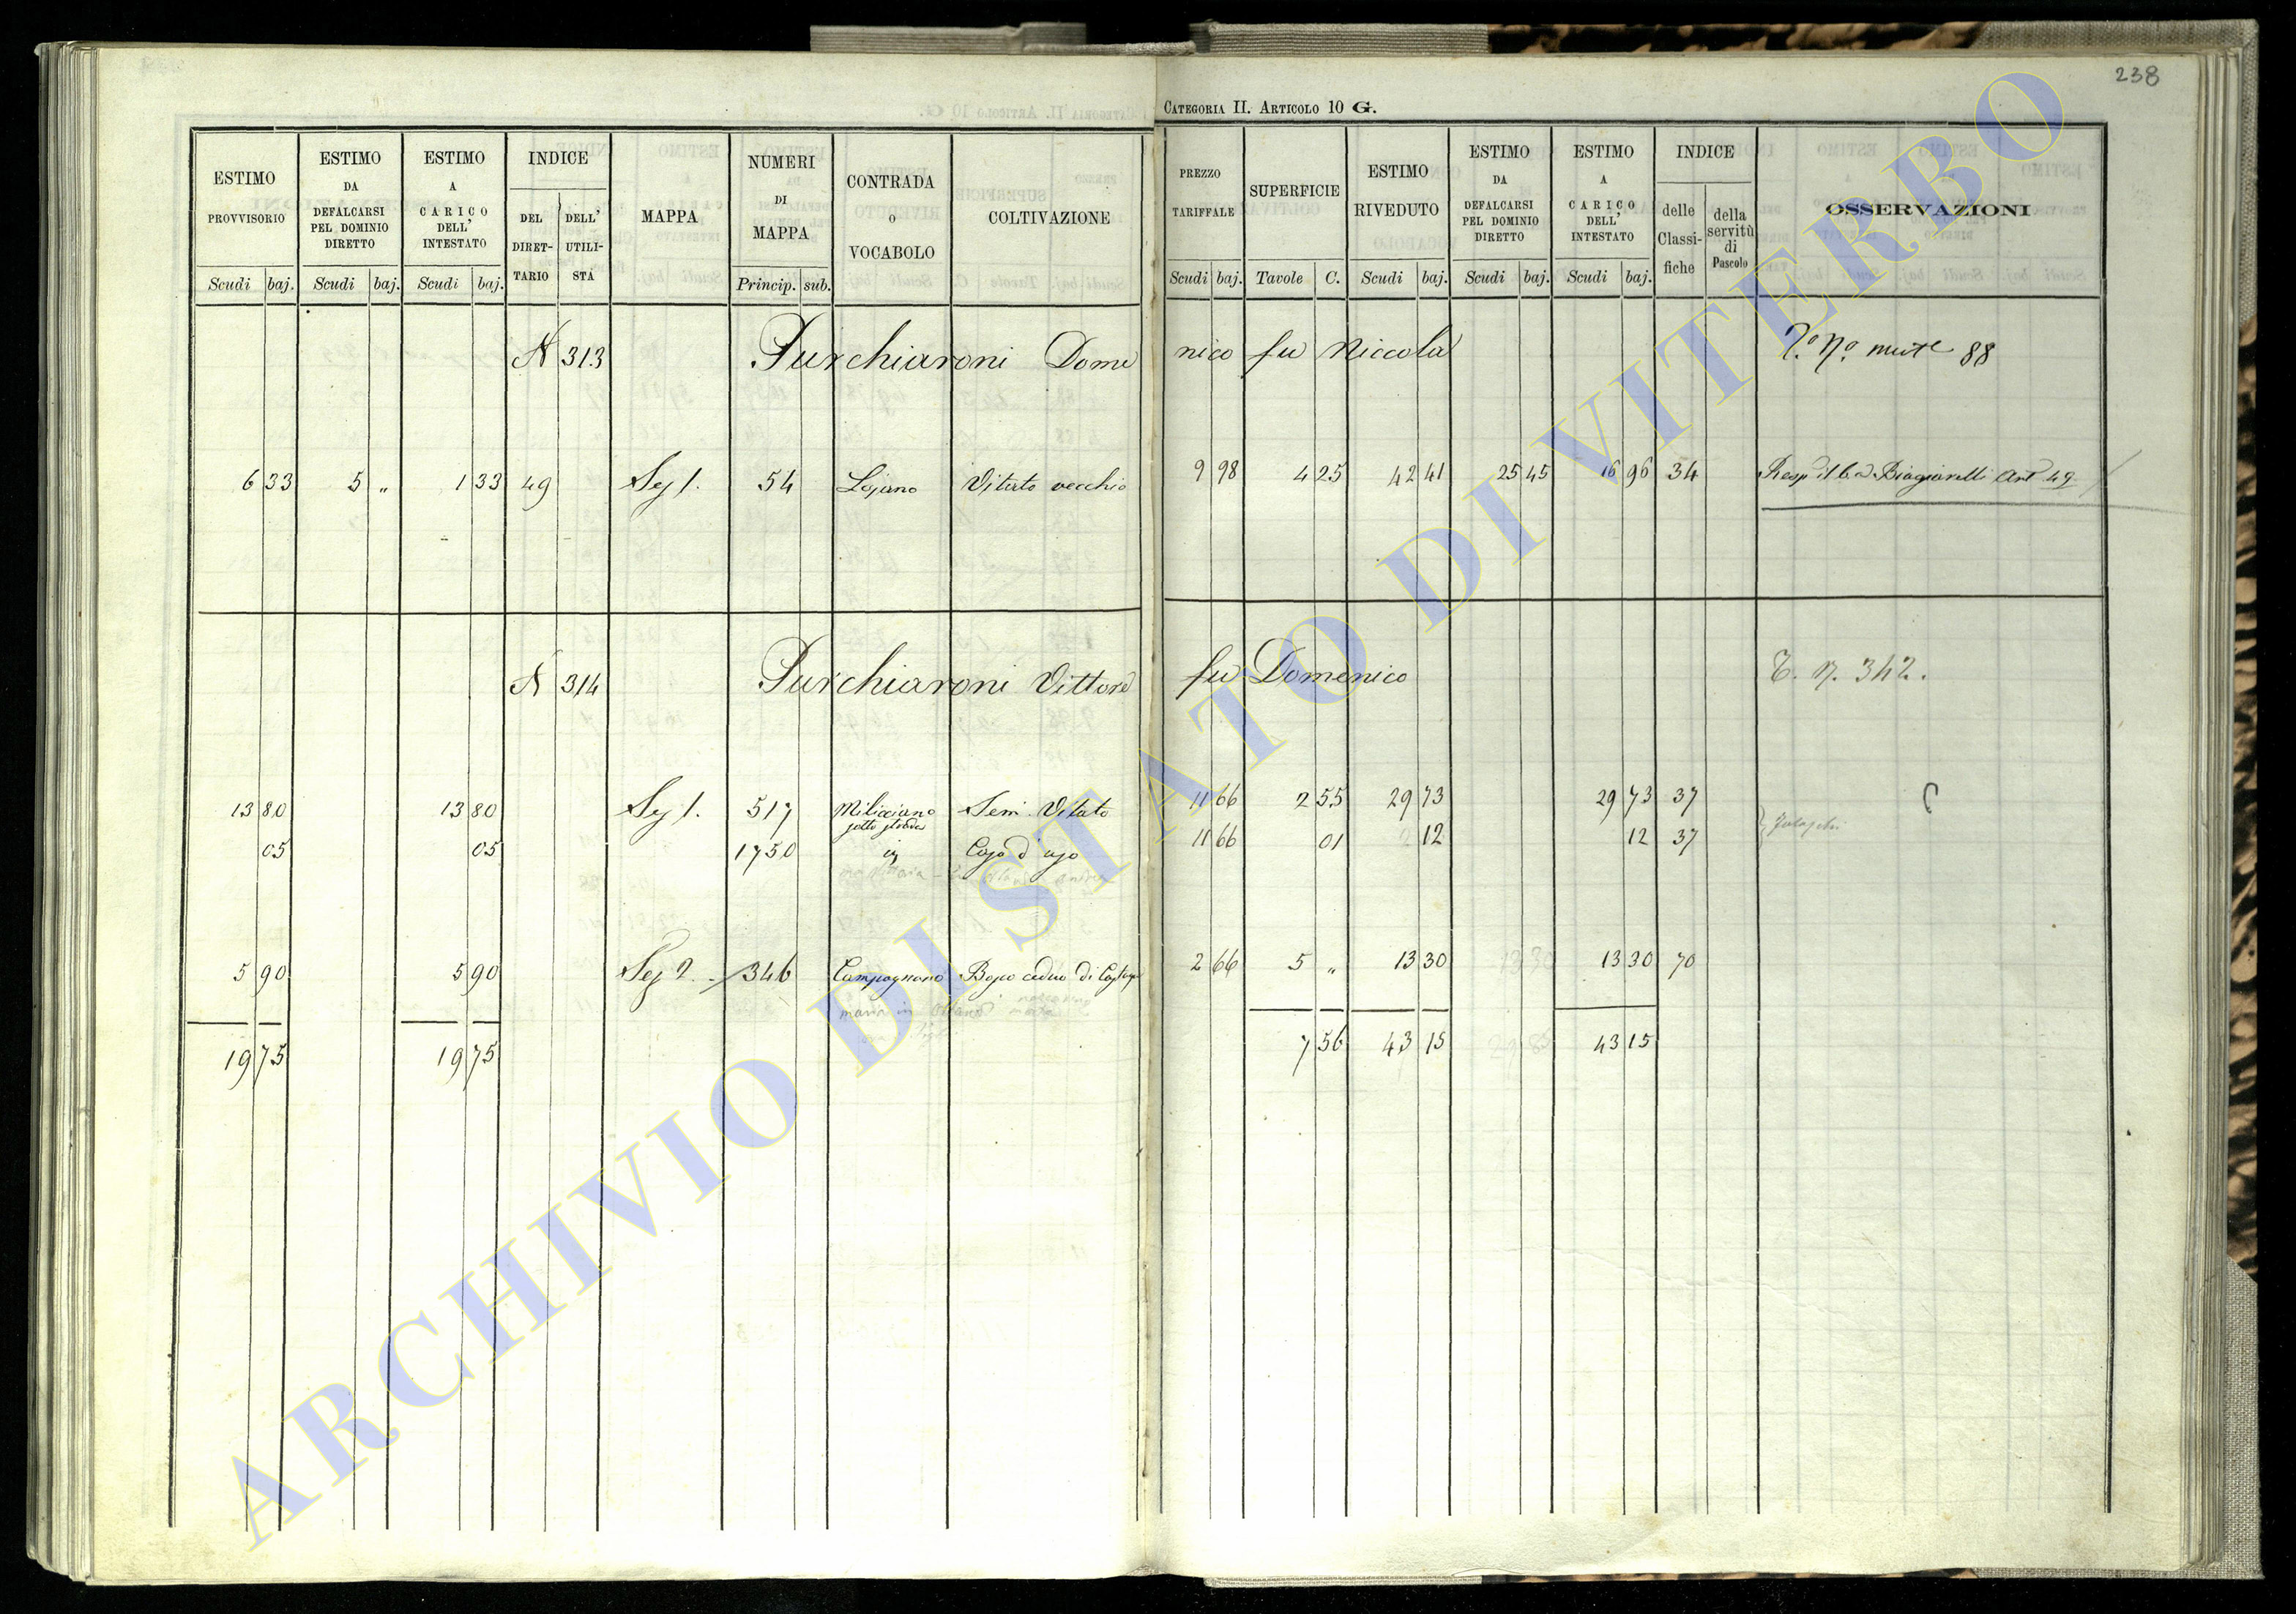 238
CATEGORIA II. ARTICOLO 10 G.
ESTIMO PROVVISORIO
Scudi baj.
ESTIMO DA DEFALCARSI PEL DOMINIO DIRETTO
Scudi baj.
ESTIMO A CARICO DELL' INTESTATO
Scudi baj.
INDICE
DEL DIRET-TARIO
DELL' UTILI-STA
MAPPA
NUMERI DI MAPPA
Princip. sub.
CONTRADA O VOCABOLO
COLTIVAZIONE
PREZZO TARIFFALE
Scudi baj.
SUPERFICIE
Tavole C.
ESTIMO RIVEDUTO
Scudi baj.
ESTIMO DA DEFALCARSI PEL DOMINIO DIRETTO
Scudi baj.
ESTIMO A CARICO DELL' INTESTATO
Scudi baj.
INDICE
delle Classi-fiche
della servitù di Pascolo
OSSERVAZIONI
N 313 Purchiaroni Dome nico fu Niccola 88
6 33 5 „ 1 33 49 Sez 1. 54 Vitato vecchio 9 98 4 25 42 41 25 45 16 96 34 Biagiarelli Art 49
N 314 Purchiaroni Vittore fu Domenico T. N. 342.
13 80 13 80 Sez 1. 517 Milicciano sotto strada Sem. Vitato 11 66 2 55 29 73 29 73 37
05 05 1750 id Casa d' uso 11 66 01 12 12 37
5 90 5 90 Sez 2. 346 Campagnano Bosco ceduo di 2 66 5 „ 13 30 13 30 70
19 75 19 75 7 56 43 15 43 15
ARCHIVIO DI STATO DI VITERBO